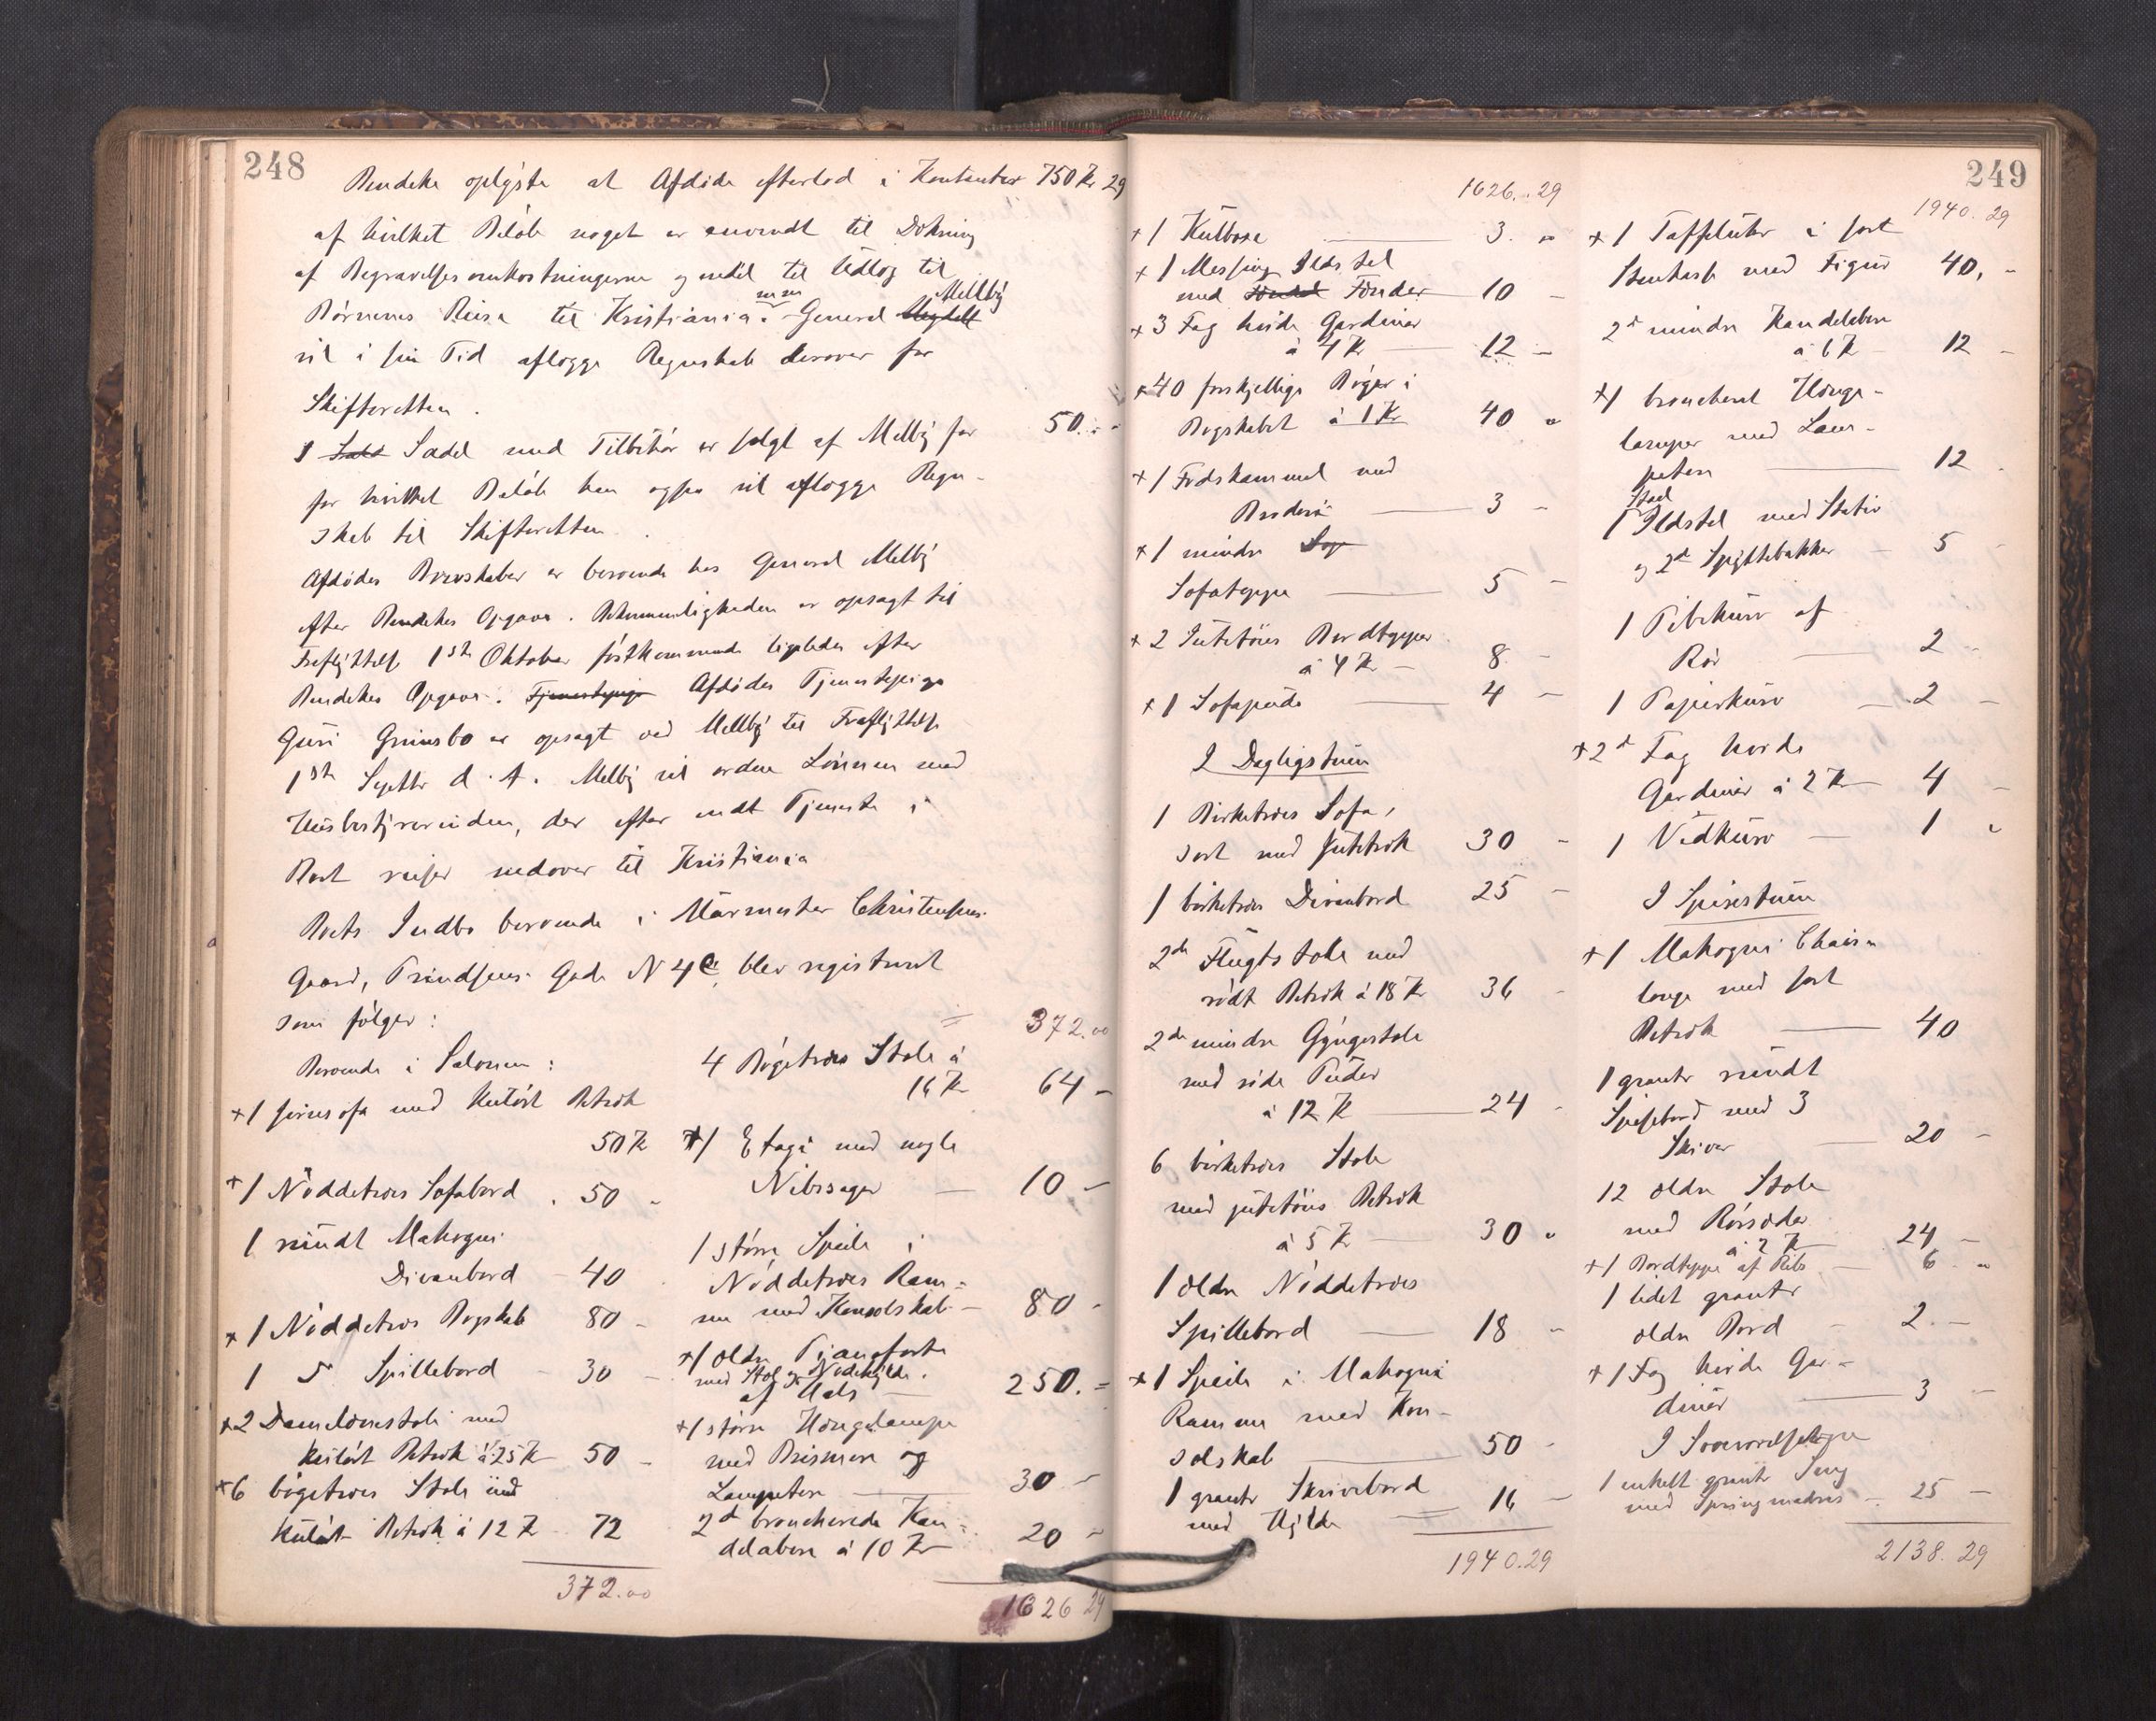 248
Bendeke oplyste at Afdøde efterlod i Kontanter 750 Kr 29
af hvilket Beløb noget er anvendt til Dækning
af Begravelsesomkostningerne og endel til Udlæg til
Børnenes Reise til Kristiania. General Mellbÿ
vil i sin Tid aflægge Regnskab derover for
Skifteretten.
1 Sadel med Tilbehør er solgt af Melbÿ for 50.
for hvilket Beløb han ogsaa vil aflægge Regn-
skab til Skifteretten.
Afdødes Brevskaber er beroende hos General Melbÿ
efter Bendekes Opgave. Bekvemmeligheden er opsagt til
Fraflyttelse 1ste Oktober førstkommende ligeledes efter
Bendekes Opgave. Afdødes Tjenestepige
Guri Grimsbo er opsagt ved Mellbÿ til Fraflyttelse
1ste Septbr d. A. Melbÿ vil ordne Lønnen med
Husbestyrerinden, der efter endt Tjeneste i
Boet reiser nedover til Kristiania
Boets Indbo beroende i Murmester Christensens
Gaard, Prindsens Gade N 4 C, blev registreret
som følger:
Beroende i Salonen:
+1 hjørnesofa med kulørt Betræk
50 Kr
+1 Nøddetræes Sofabord 50 -
1 rundt Mahogni
Divanbord - 40
+1 Nøddetræs Bogskab 80 -
1 Spillebord - 30 -
+2 Damelænestole med
kulørt Betræk á 25 Kr 50 -
+6 bøgetræes Stole med
kulørt Betræk á 12 Kr 72
372.00
372.00
4 Bøgetræes Stole á
16 Kr 64 -
+1 Etagé med nogle
Nibssager - 10 -
1 større Speile i
Nøddetræes Ram-
me med Konsolskab - 80 -
+1 ældre Pianoforte
med Stol og Nodehylde
af Hals - 250. =
+1 større Hængelampe
med Prismer og
Lampeter 30 -
2de broncherede Kan-
delabere á 10 Kr 20 -
1626 29
1626.. 29
+1 Kulboxe 3. -
+1 Messing Ildstel
med Fender 10 -
+3 Fag hvide Gardiner
á 4 Kr 12 -
+40 forskjellige Bøger i
Bogskabet á 1 Kr 40 -
+1 Fodskammel med
Broderi 3 -
+1 mindre
Sofateppe 5 -
+2 Jutetøies Bordtepper
á 4 Kr - 8 -
+1 Sofapude 4 -
I Dagligstuen
1 Birketræes Sofa,
sort med Jutetræk 30 -
1 birketræes Divanbord 25 -
2de Flugtstole med
rødt Betræk á 18 Kr 36 -
2de mindre Gyngestole
med røde Puder
á 12 Kr 24 -
6 birketræes Stole
med jutetøies Betræk
á 5 Kr 30 -
1 ældre Nøddetræes
Spillebord 18 -
+1 Speile i Mahogni
Ramme med Kon-
solskab 50 -
1 graatr Skrivebord
med Hylde 16 -
1940.29
249
1940. 29
+1 Taffeluhr i sort
Stenkasse med Figur 40, -
2de mindre Kandelabere
á 6 Kr 12 -
+1 broncheret Hænge-
lamper med Lam-
peter 12
Staal
1 Ildstel med Stativ
og 2de Spyttebakker - 5 -
1 Pibekurv af
Rør 2 -
1 Papirkurv - 2 -
+2de Fag hvide
Gardiner á 2 Kr 4 -
1 Vedkurv - 1 -
I Spisestuen
+1 Mahogni Chaise
longe med sort
Betræk 40
1 graatr rundt
Spisebord med 3
Skiver 20 -
12 ældre Stole
med Rørsæder
á 2 Kr 24 -
+1 Bordteppe af Ribs - 6. -
1 lidet graatr
ældre Bord - 2. -
+1 Fag hvide Gar-
diner 3 -
I Soveværelse
1 enkelt graatr Seng
med Springmadras - 25 -
2138. 29